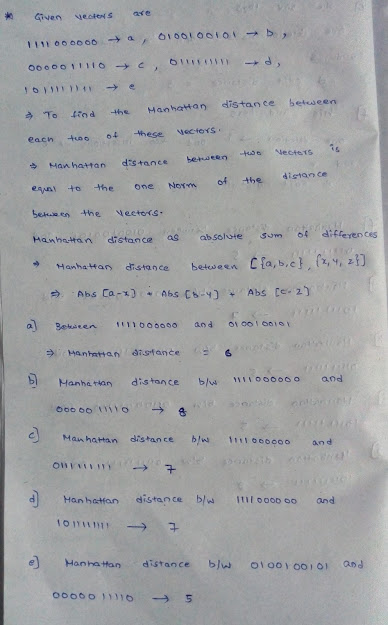 * Given vectors are
1111000000 → a , 0100100101 → b ,
0000011110 → c , 0111111111 → d ,
1011111111 → e
⇒ To find the Manhattan distance between
each two of these vectors.
⇒ Manhattan distance between two vectors is
equal to the one Norm of the distance
between the vectors.
Manhattan distance as absolute sum of differences
* Manhattan distance between [{a,b,c}, {x,y,z}]
⇒ Abs [a-x] + Abs [b-y] + Abs [c-z]
a] Between 1111000000 and 0100100101
⇒ Manhattan distance = 6
b] Manhattan distance b/w 1111000000 and
0000011110 → 8
c] Manhattan distance b/w 1111000000 and
0111111111 → 7
d] Manhattan distance b/w 1111000000 and
1011111111 → 7
e] Manhattan distance b/w 0100100101 and
0000011110 → 5